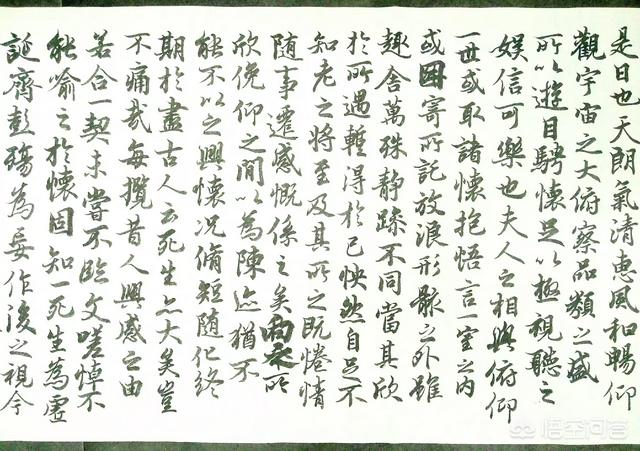 是日也天朗氣清惠風和暢仰
觀宇宙之大俯察品類之盛
所以遊目騁懷足以極視聽之
娛信可樂也夫人之相與俯仰
一世或取諸懷抱悟言一室之內
或因寄所託放浪形骸之外雖
趣舍萬殊静躁不同當其欣
於所遇蹔得於己怏然自足不
知老之將至及其所之既惓情
随事遷感慨係之矣向之所
欣俛仰之閒以為陳迹猶不
能不以之興懷況脩短随化終
期於盡古人云死生亦大矣豈
不痛哉每攬昔人興感之由
若合一契未嘗不臨文嗟悼不
能喻之於懷固知一死生為虛
誕齊彭殤為妄作後之視今
悟空问答